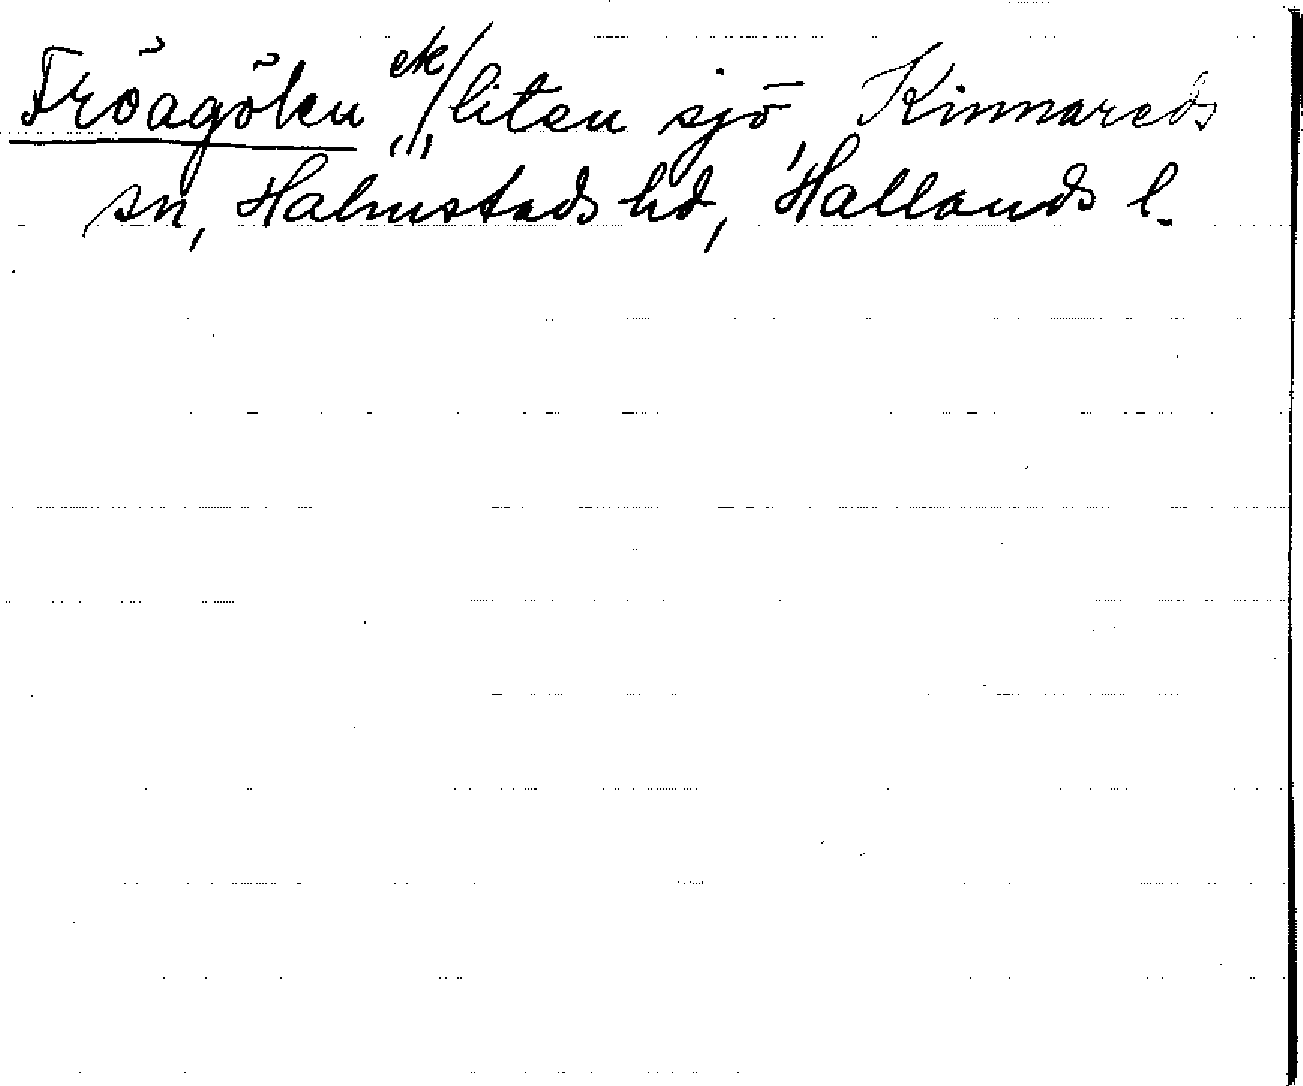 Fröagölen ek/liten sjö, Kinnareds
sn, Halmstads hd, Hallands l.